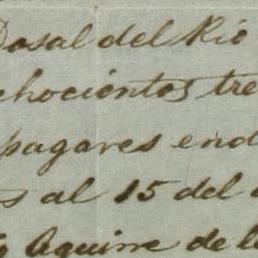 Dosal del Rio
chocientos tre
pagares end
s al 15 del
Aguirre de la